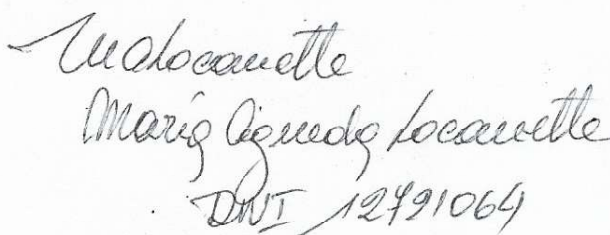 MALocanetto
María Agueda Locanetto
DNI 12791064